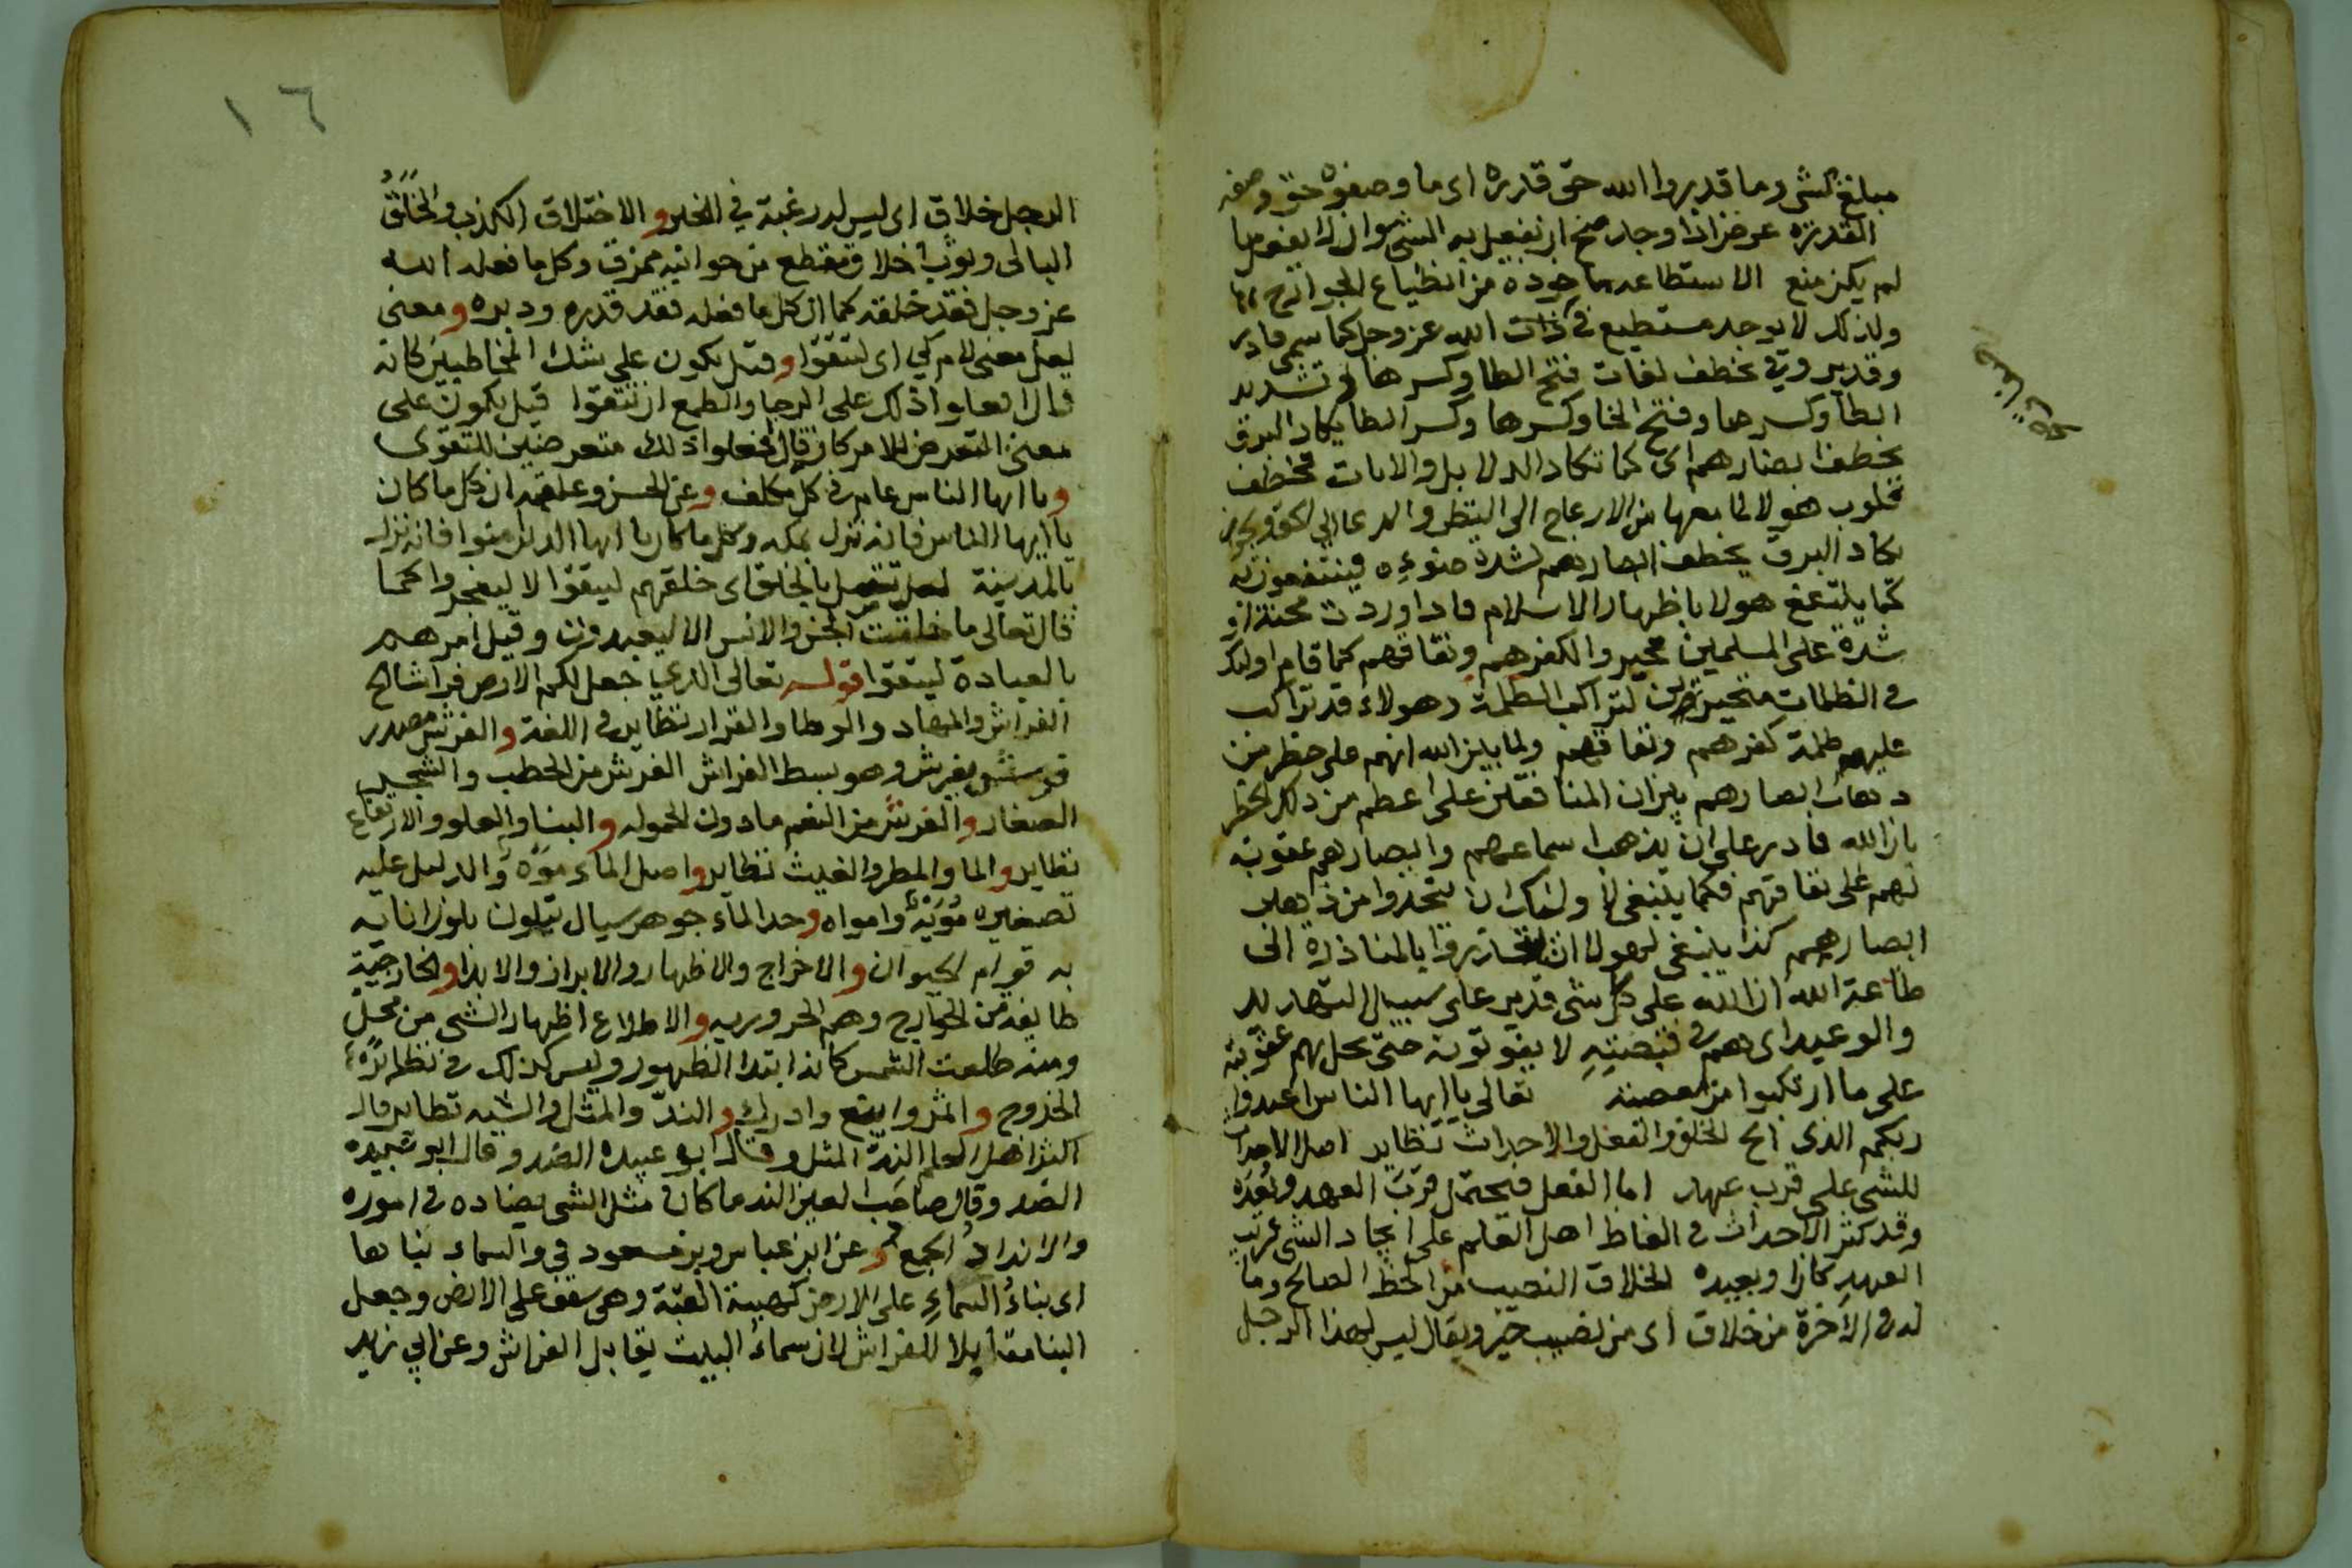 مبلغ الشى وما قدروا الله حق قدره اى ما وصفوه حق وصفه
القدرة عرض اذا وجد صح ان يفعل به الشى وان لا يفعل
لم يكن منع الاستطاعه ماخوذه من انطياع الجوارح
ولذلك لا يوجد مستطيع فى ذات الله عز وجل كما سمى قادر
وقدير وفى يخطف لغات فتح الطا وكسرها وتشديد
الطا وكسرها وفتح الخا وكسرها وكسر الطا يكاد البرق
يخطف ابصارهم اى كما تكاد الدلايل والايات تخطف
قلوب هولا لما معها من الازعاج الى النظر والدعا الى
يكاد البرق يخطف ابصارهم لشدة ضوءه فينتفعون به
كما ينتفع هولا باظهار الاسلام فاذا وردت محنة او
شدة على المسلمين تحيروا لكفرهم ونفاقهم كما قام اولئك
فى الظلمات متحيرين لتراكب الظلمة وهولاء قد تراكب
عليهم ظلمة كفرهم ونفاقهم ولما بين الله انهم على خطر من
ذهاب ابصارهم بين ان المنافقين على اعظم من ذلك الخطر
بان الله قادر على ان يذهب اسماعهم وابصارهم عقوبة
لهم على نفاقهم فكما ينبغى لاولئك ان يتحذروا من ذهاب
ابصارهم كذا ينبغى لهولا ان يتحذروا بالمبادرة الى
طاعة الله ان الله على كل شى قدير على سبيل التهديد
والوعيد اى هم فى قبضته لا يفوتون حتى يحل بهم عقوبته
على ما ارتكبوا من معصيته تعالى يا ايها الناس اعبدوا
ربكم الذى الخ الخلق والفعل والاحداث نظاير اصل الاحداث
للشى على قرب عهد اما الفعل فيحتمل قرب العهد وبعده
وقد كثر الاحداث فى الفاظ اهل العلم على ايجاد الشى قريب
العهد كان او بعيده الخلاق النصيب من الحظ الصالح وما
له فى الاخرة من خلاق اى من نصيب خير ويقال ليس لهذا الرجل
١٦
الرجل خلاق اى ليس له رغبة فى الخير والاختلاق الكذب والخلق
البالى وثوب اخلاق متقطع من جوانبه ممزق وكل ما فعله الله
عز وجل فقد خلقه كما ان كل ما فعله فقد قدره ودبره ومعنى
لعل معنى لام كى اى لتتقوا وقيل يكون على شك المخاطبين كانه
قال افعلوا ذلك على الرجا والطمع ان تتقوا قيل يكون على
معنى التعرض للامر كانه قال افعلوا ذلك متعرضين للتقوى
ويا ايها الناس عام فى كل مكلف وعن الحسن وعلقمه ان كل ما كان
يا ايها الناس فانه نزل بمكه وكل ما كان يا ايها الذين امنوا فانه نزل
بالمدينة لعل تتصل بالخلق اى خلقهم ليتقوا لا ليفجروا كما
قال تعالى ما خلقت الجن والانس الا ليعبدون وقيل امرهم
بالعبادة ليتقوا قوله تعالى الذي جعل لكم الارض فراشا الخ
الفراش والمهاد والوطا والقرار نظاير فى اللغة والفرش مصدر
فرش يفرش وهو بسط الفراش الفرش من الحطب والشجر
الصغار والفرش من النعم ما دون الحموله والبنا والعلو والارتفاع
نظاير والما والمطر والغيث نظاير واصل الماء موه والدليل عليه
تصغيره مويه وامواه وحد الماء جوهر سيال يتلون بلون انائه
به قوام الحيوان والاخراج والاظهار والابراز والابدا والخارجية
طايفة من الخوارج وهم الحروريه والاطلاع اظهار الشى من محل
ومنه طلعت الشمس كانه ابتدا الظهور وليس كذلك فى نظائره
الخروج والثمر واينع وادرك والند والمثل والشبه نظاير قال
اكثر اهل العلم الند المثل وقال ابو عبيده الضد وقال ابو عبيده
الضد وقال صاحب العين الند ما كان مثل الشى يضاده فى اموره
والانداد الجمع وعن ابن عباس وبن مسعود فى والسماء بناها
اى بناء السماء على الارض كهيئة القبة وهى سقف على الارض وجعل
البنا مقابلا للفراش لان سماء البيت يقابل الفراش وعن ابي زيد